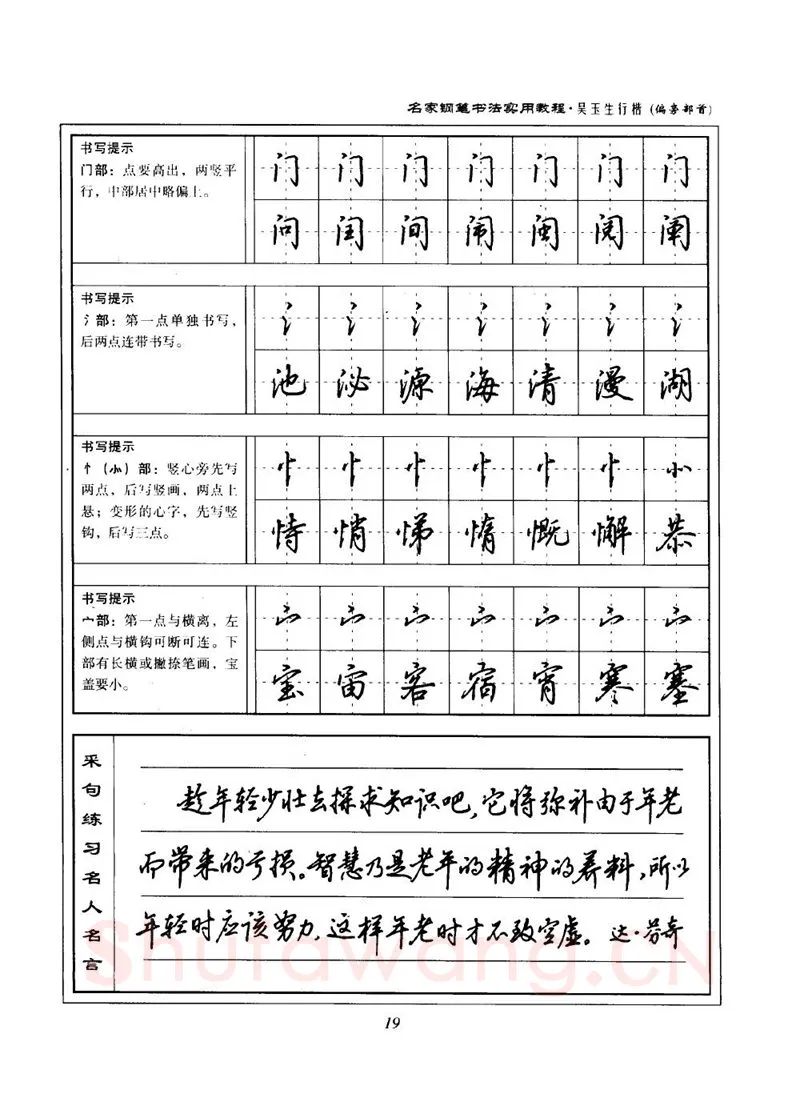 名家钢笔书法实用教程·吴玉生行楷(偏旁部首)
书写提示
门部：点要高出，两竖平
行，中部居中略偏上。
门 门 门 门 门 门 门
问 闰 间 闹 闽 阅 阐
书写提示
氵部：第一点单独书写，
后两点连带书写。
氵 氵 氵 氵 氵 氵 氵
池 泌 源 海 清 漫 湖
书写提示
忄(⺗)部：竖心旁先写
两点，后写竖画，两点上
悬；变形的心字，先写竖
钩，后写三点。
忄 忄 忄 忄 忄 忄 ⺗
恃 悄 悌 惰 慨 懈 恭
书写提示
宀部：第一点与横离，左
侧点与横钩可断可连。下
部有长横或撇捺笔画，宝
盖要小。
宀 宀 宀 宀 宀 宀 宀
宝 宙 客 宿 宵 寒 塞
采句练习名人名言
趁年轻少壮去探求知识吧，它将弥补由于年老
而带来的亏损。智慧乃是老年的精神的养料，所以
年轻时应该努力，这样年老时才不致空虚。 达·芬奇
Shufawang.CN
19